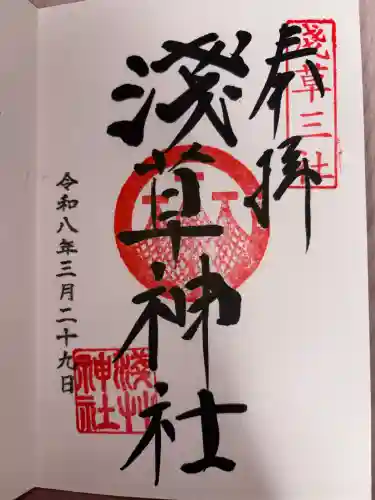 奉拝
淺草三社
淺草神社
淺草神社
令和八年三月二十九日